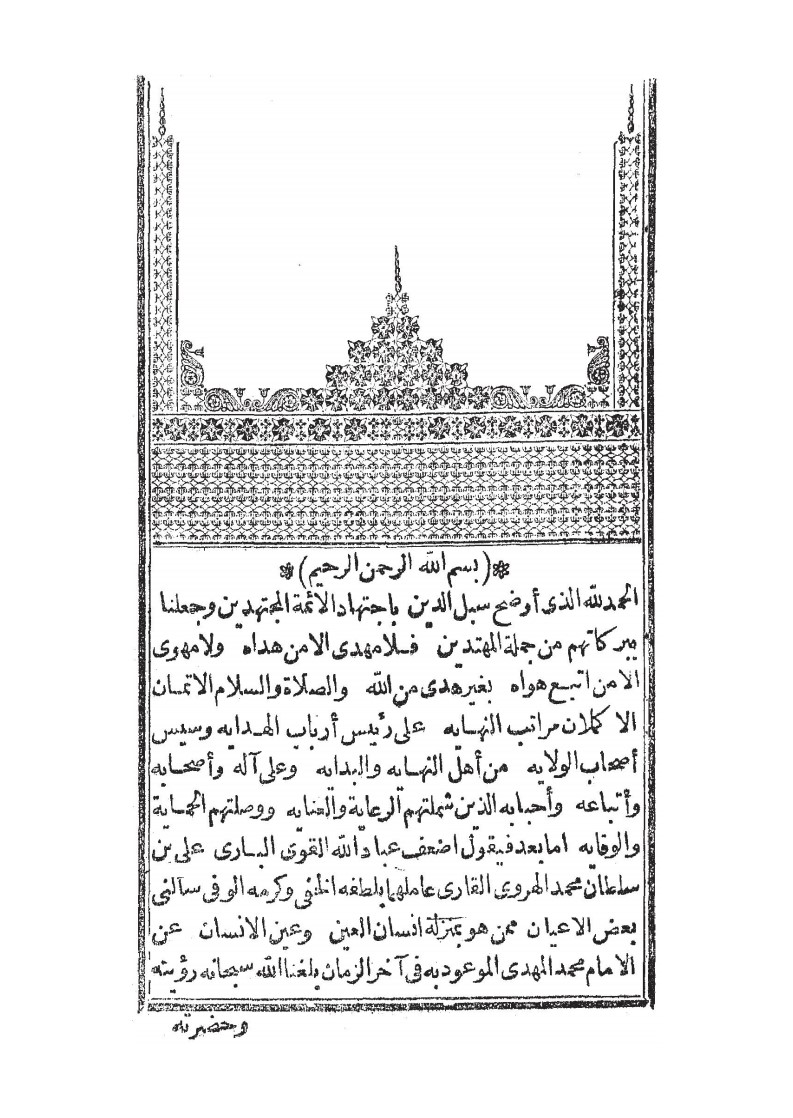 (بسم الله الرحمن الرحيم)
الحمد لله الذى أوضح سبل الدين باجتهاد الأئمة المجتهدين وجعلنا
ببركاتهم من جملة المهتدين فلا مهدى الا من هداه ولا مهوى
الا من اتبع هواه بغير هدى من الله والصلاة والسلام الاتمان
الاكملان مراتب النهايه على رئيس أرباب الهدايه وسيس
أصحاب الولايه من أهل النهايه والبدايه وعلى آله وأصحابه
وأتباعه وأحبابه الذين شملتهم الرعاية والعنايه ووصلتهم الحماية
والوقايه اما بعد فيقول اضعف عباد الله القوى البارى على بن
سلطان محمد الهروى القارى عاملهما بلطفه الخفى وكرمه الوفى سألنى
بعض الاعيان ممن هو بمنزلة انسان العين وعين الانسان عن
الامام محمد المهدى الموعود به فى آخر الزمان بلغنا الله سبحانه رؤيته
وحضرته